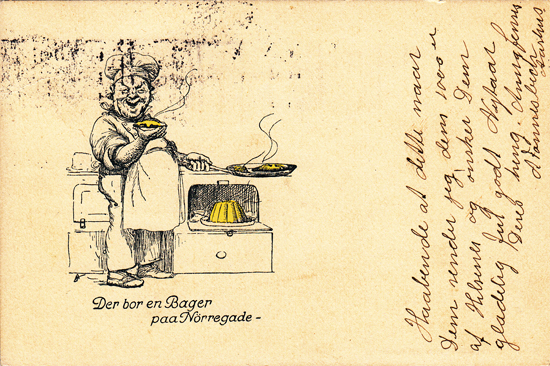 Der bor en Bager
paa Nörregade -
Haabende at dette naar
Dem sender jeg dem 1000 u
af Hilsner og ønsker Dem
gladelig Jul godt Nytaar
Deres hung.